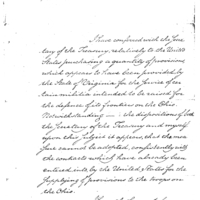 I have conferred with the Secre
tary of the Treasury, relatively to the United
States purchasing a quantity of provisions
which appears to have been provided by
the State of Virginia for the service of cer
tain militia intended to be raised for
the defence of its frontiers on the Ohio.
Notwithstanding the dispositions of both
the Secretary of the Treasury and myself
upon this subject it appears, that the mea
sure cannot be adopted, consistently with
the contracts which have already been
entered into by the United States for the
supplying of provisions to the troops on
the Ohio.